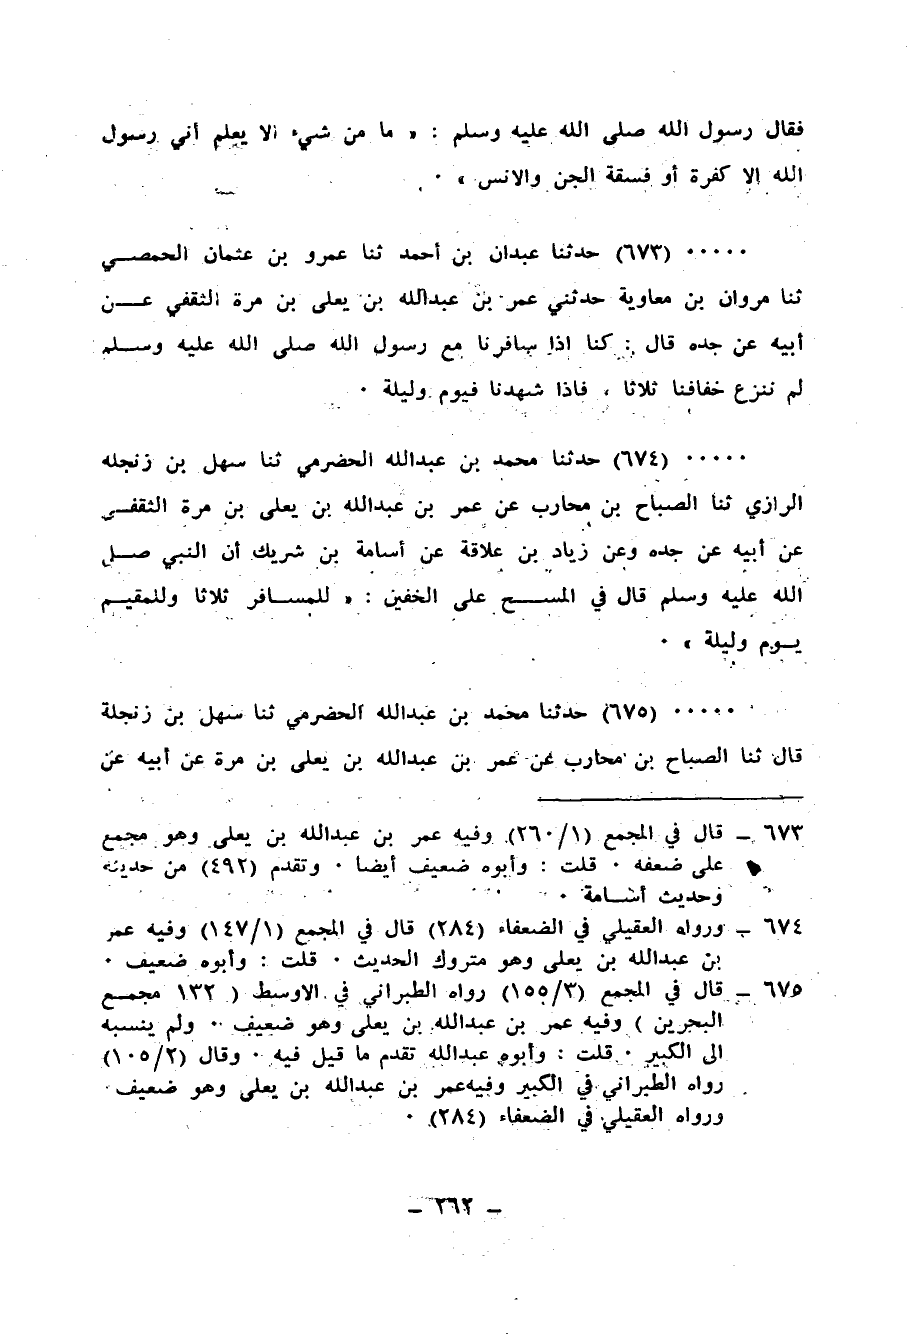 فقال رسول الله صلى الله عليه وسلم : « ما من شيء الا يعلم أني رسول
الله إلا كفرة أو فسقة الجن والانس » ٠
٠٠٠٠٠ (٦٧٣) حدثنا عبدان بن أحمد ثنا عمرو بن عثمان الحمصـــي
ثنا مروان بن معاوية حدثني عمر بن عبدالله بن يعلى بن مرة الثقفي عـــن
أبيه عن جده قال : كنا اذا سافرنا مع رسول الله صلى الله عليه وســلم
لم ننزع خفافنا ثلاثا ، فاذا شهدنا فيوم وليلة ٠
٠٠٠٠٠ (٦٧٤) حدثنا محمد بن عبدالله الحضرمي ثنا سهل بن زنجله
الرازي ثنا الصباح بن محارب عن عمر بن عبدالله بن يعلى بن مرة الثقفــي
عن أبيه عن جده وعن زياد بن علاقة عن أسامة بن شريك أن النبي صــلى
الله عليه وسلم قال في المســـح على الخفين : « للمســافر ثلاثا وللمقيــم
يــوم وليلة » ٠
٠٠٠٠٠ (٦٧٥) حدثنا محمد بن عبدالله الحضرمي ثنا سهل بن زنجلة
قال ثنا الصباح بن محارب عن عمر بن عبدالله بن يعلى بن مرة عن أبيه عن
٦٧٣ ــ قال في المجمع (٢٦٠/١) وفيه عمر بن عبدالله بن يعلى وهو مجمع
على ضعفه ٠ قلت : وأبوه ضعيف أيضا ٠ وتقدم (٤٩٢) من حديثه
وحديث أســامة ٠
٦٧٤ ــ ورواه العقيلي في الضعفاء (٢٨٤) قال في المجمع (١٤٧/١) وفيه عمر
بن عبدالله بن يعلى وهو متروك الحديث ٠ قلت : وأبوه ضعيف ٠
٦٧٥ ــ قال في المجمع (١٥٥/٣) رواه الطبراني في الاوسط ( ١٣٢ مجمــع
البحرين ) وفيه عمر بن عبدالله بن يعلى وهو ضعيف ٠٠ ولم ينسبه
الى الكبير ٠ قلت : وأبوه عبدالله تقدم ما قيل فيه ٠ وقال (١٠٥/٢)
رواه الطبراني في الكبير وفيه عمر بن عبدالله بن يعلى وهو ضعيف ٠
ورواه العقيلي في الضعفاء (٢٨٤) ٠
ــ ٢٦٢ ــ